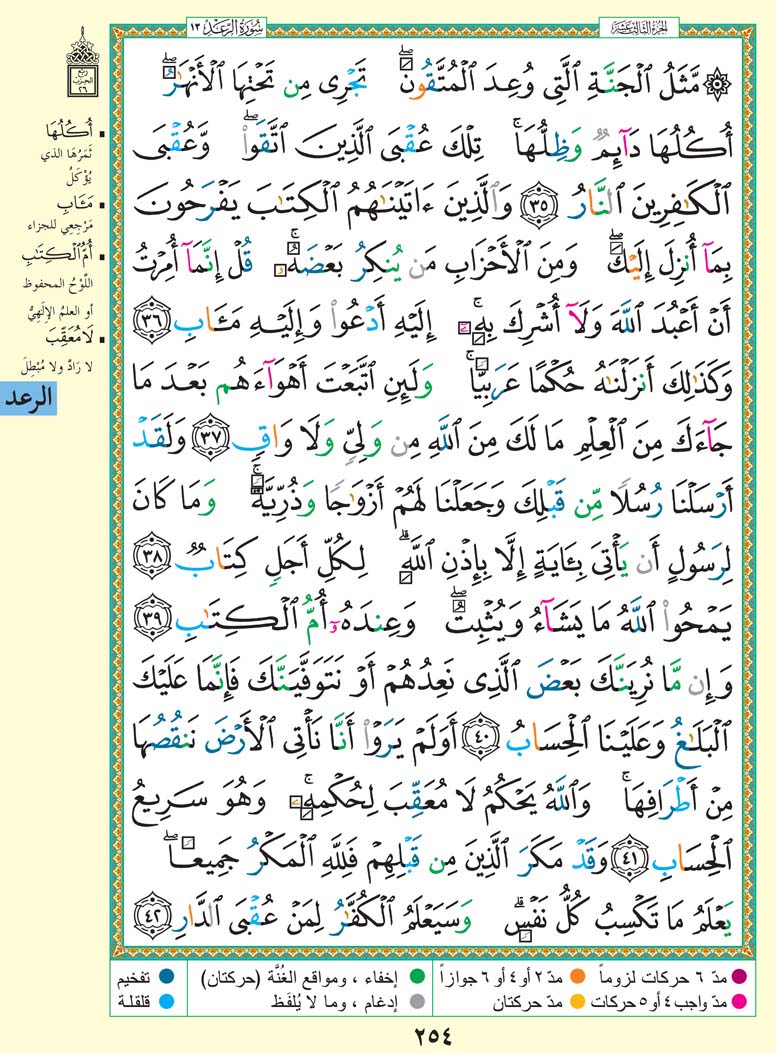 الجزء الثالث عشر
سورة الرعد ١٣
۞ مَّثَلُ الْجَنَّةِ الَّتِى وُعِدَ الْمُتَّقُونَ ۖ تَجْرِى مِن تَحْتِهَا الْأَنْهَٰرُ ۖ
أُكُلُهَا دَآئِمٌ وَظِلُّهَا ۚ تِلْكَ عُقْبَى الَّذِينَ اتَّقَوا۟ ۖ وَّعُقْبَى
الْكَٰفِرِينَ النَّارُ ٣٥ وَالَّذِينَ ءَاتَيْنَٰهُمُ الْكِتَٰبَ يَفْرَحُونَ
بِمَآ أُنزِلَ إِلَيْكَ ۖ وَمِنَ الْأَحْزَابِ مَن يُنكِرُ بَعْضَهُۥ ۚ قُلْ إِنَّمَآ أُمِرْتُ
أَنْ أَعْبُدَ اللَّهَ وَلَآ أُشْرِكَ بِهِۦٓ ۚ إِلَيْهِ أَدْعُوا۟ وَإِلَيْهِ مَـَٔابِ ٣٦
وَكَذَٰلِكَ أَنزَلْنَٰهُ حُكْمًا عَرَبِيًّا ۚ وَلَئِنِ اتَّبَعْتَ أَهْوَآءَهُم بَعْدَ مَا
جَآءَكَ مِنَ الْعِلْمِ مَا لَكَ مِنَ اللَّهِ مِن وَلِىٍّ وَلَا وَاقٍ ٣٧ وَلَقَدْ
أَرْسَلْنَا رُسُلًا مِّن قَبْلِكَ وَجَعَلْنَا لَهُمْ أَزْوَٰجًا وَذُرِّيَّةً ۚ وَمَا كَانَ
لِرَسُولٍ أَن يَأْتِىَ بِـَٔايَةٍ إِلَّا بِإِذْنِ اللَّهِ ۗ لِكُلِّ أَجَلٍ كِتَابٌ ٣٨
يَمْحُوا۟ اللَّهُ مَا يَشَآءُ وَيُثْبِتُ ۖ وَعِندَهُۥٓ أُمُّ الْكِتَٰبِ ٣٩
وَإِن مَّا نُرِيَنَّكَ بَعْضَ الَّذِى نَعِدُهُمْ أَوْ نَتَوَفَّيَنَّكَ فَإِنَّمَا عَلَيْكَ
الْبَلَٰغُ وَعَلَيْنَا الْحِسَابُ ٤٠ أَوَلَمْ يَرَوْا۟ أَنَّا نَأْتِى الْأَرْضَ نَنقُصُهَا
مِنْ أَطْرَافِهَا ۚ وَاللَّهُ يَحْكُمُ لَا مُعَقِّبَ لِحُكْمِهِۦ ۚ وَهُوَ سَرِيعُ
الْحِسَابِ ٤١ وَقَدْ مَكَرَ الَّذِينَ مِن قَبْلِهِمْ فَلِلَّهِ الْمَكْرُ جَمِيعًا ۖ
يَعْلَمُ مَا تَكْسِبُ كُلُّ نَفْسٍ ۗ وَسَيَعْلَمُ الْكُفَّٰرُ لِمَنْ عُقْبَى الدَّارِ ٤٢
ربع
الحزب
٢٦
• أُكُلُهَا
ثَمَرُهَا الذي
يُؤْكَلُ
• مَـَٔابِ
مَرْجِعِي للجزاء
• أُمُّ الْكِتَٰبِ
اللَّوْحُ المحفوظ
أو العلمُ الإلَهِيُّ
• لَا مُعَقِّبَ
لا رَادَّ ولا مُبْطِلَ
الرعد
مدّ ٦ حركات لزوماً
مدّ ٢ أو ٤ أو ٦ جوازاً
إخفاء ، ومواقع الغُنَّة (حركتان)
تفخيم
مدّ واجب ٤ أو ٥ حركات
مدّ حركتان
إدغام ، وما لا يُلفَظ
قلقلة
٢٥٤